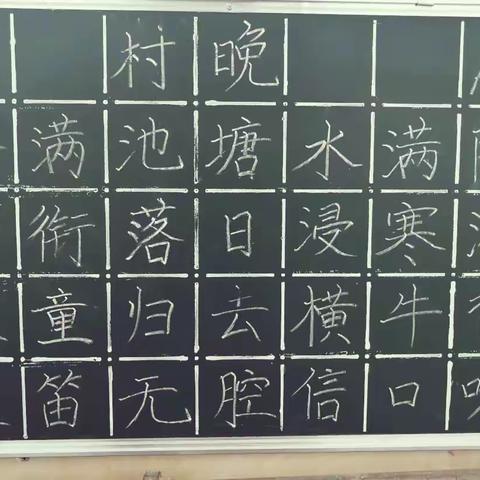 村晚
满池塘水满
衔落日浸寒
童归去横牛
笛无腔信口